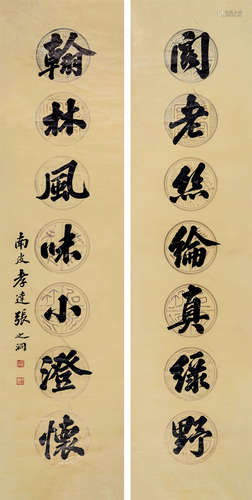 阁老丝纶真绿野
翰林風味小澄懷
南皮孝達張之洞